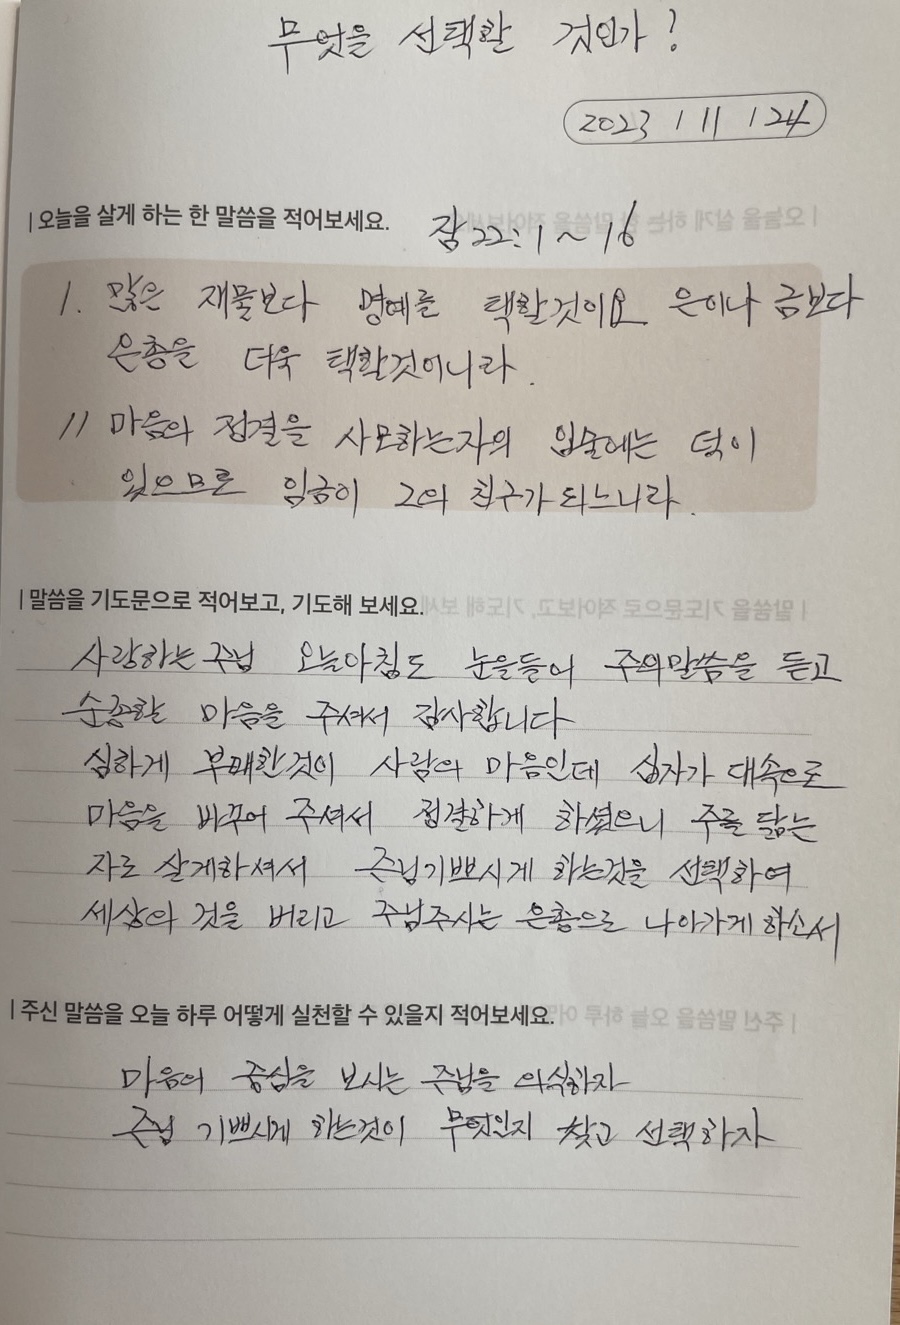 무엇을 선택할 것인가?
2023 / 11 / 24
| 오늘을 살게 하는 한 말씀을 적어보세요. 잠 22:1~16
1. 많은 재물보다 명예를 택할것이요 은이나 금보다
은총을 더욱 택할것이니라.
11 마음의 정결을 사모하는자의 입술에는 덕이
있으므로 임금이 그의 친구가 되느니라.
| 말씀을 기도문으로 적어보고, 기도해 보세요.
사랑하는 주님 오늘아침도 눈을들어 주의말씀을 듣고
순종할 마음을 주셔서 감사합니다
심하게 부패한것이 사람의 마음인데 십자가 대속으로
마음을 바꾸어 주셔서 정결하게 하셨으니 주를 닮는
자로 살게하셔서 주님기쁘시게 하는것을 선택하여
세상의 것을 버리고 주님주시는 은총으로 나아가게 하소서
| 주신 말씀을 오늘 하루 어떻게 실천할 수 있을지 적어보세요.
마음의 중심을 보시는 주님을 의식하자
주님 기쁘시게 하는것이 무엇인지 찾고 선택하자